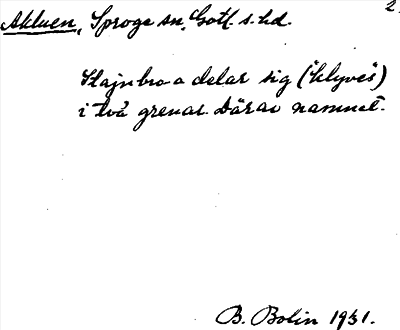 2.
Akluen, Sproge sn, Gotl. s. hd.
Stajnbro-a delar sig ("klyves")
i två grenar. Därav namnet.
B. Bolin 1931.